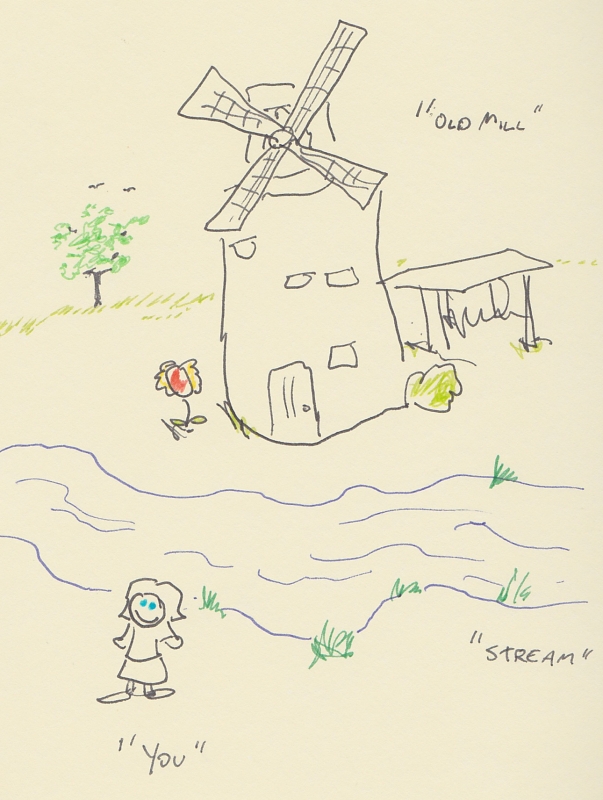 "OLD MILL"
"STREAM"
"YOU"